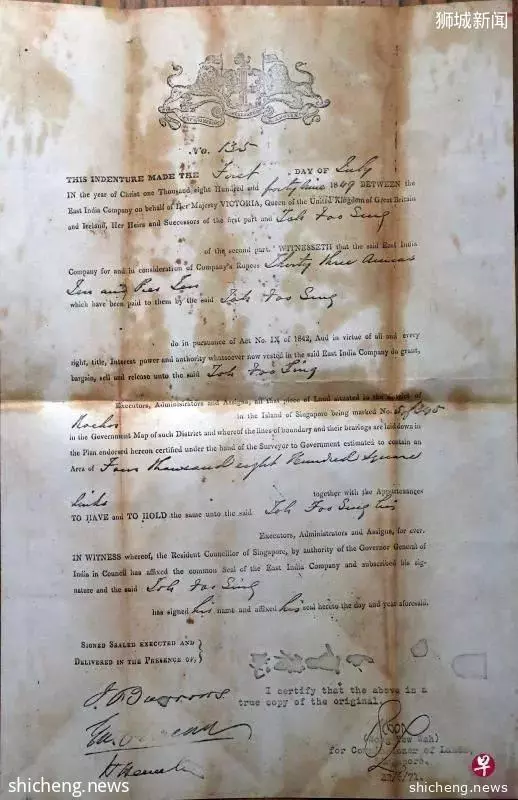 狮城新闻
No. 135
THIS INDENTURE MADE THE First DAY OF July
IN the year of Christ one Thousand eight Hundred and forty nine 1849 BETWEEN the
East India Company on behalf of Her Majesty VICTORIA, Queen of the United Kingdom of Great Britain
and Ireland, Her Heirs and Successors of the first part and Toh Foo Sing
of the second part. WITNESSETH that the said East India
Company for and in consideration of Company's Rupees Thirty three Annas
Ten and Pies Ten
which have been paid to them by the said Toh Foo Sing
do in pursuance of Act No. IX of 1842, And in virtue of all and every
right, title, Interest power and authority whatsoever now vested in the said East India Company do grant,
bargain, sell and release unto the said Toh Foo Sing
Executors, Administrators and Assigns, all that piece of Land situated in the district of
in the Island of Singapore being marked No.
in the Government Map of such District and whereof the lines of boundary and their bearings are laid down in
the Plan endorsed hereon certified under the hand of the Surveyor to Government estimated to contain an
Area of Four thousand eight Hundred Square
Links
together with the Appurtenances
TO HAVE and TO HOLD the same unto the said Toh Foo Sing his
Executors, Administrators and Assigns, for ever.
IN WITNESS whereof, the Resident Councillor of Singapore, by authority of the Governor General of
India in Council has affixed the common Seal of the East India Company and subscribed his sig-
nature and the said Toh Foo Sing
has signed his name and affixed his seal hereto the day and year aforesaid.
SIGNED SEALED EXECUTED AND
DELIVERED IN THE PRESENCE OF,
I certify that the above is a
true copy of the original.
for Commissioner of Lands,
Singapore.
早
shicheng.news
shicheng.news